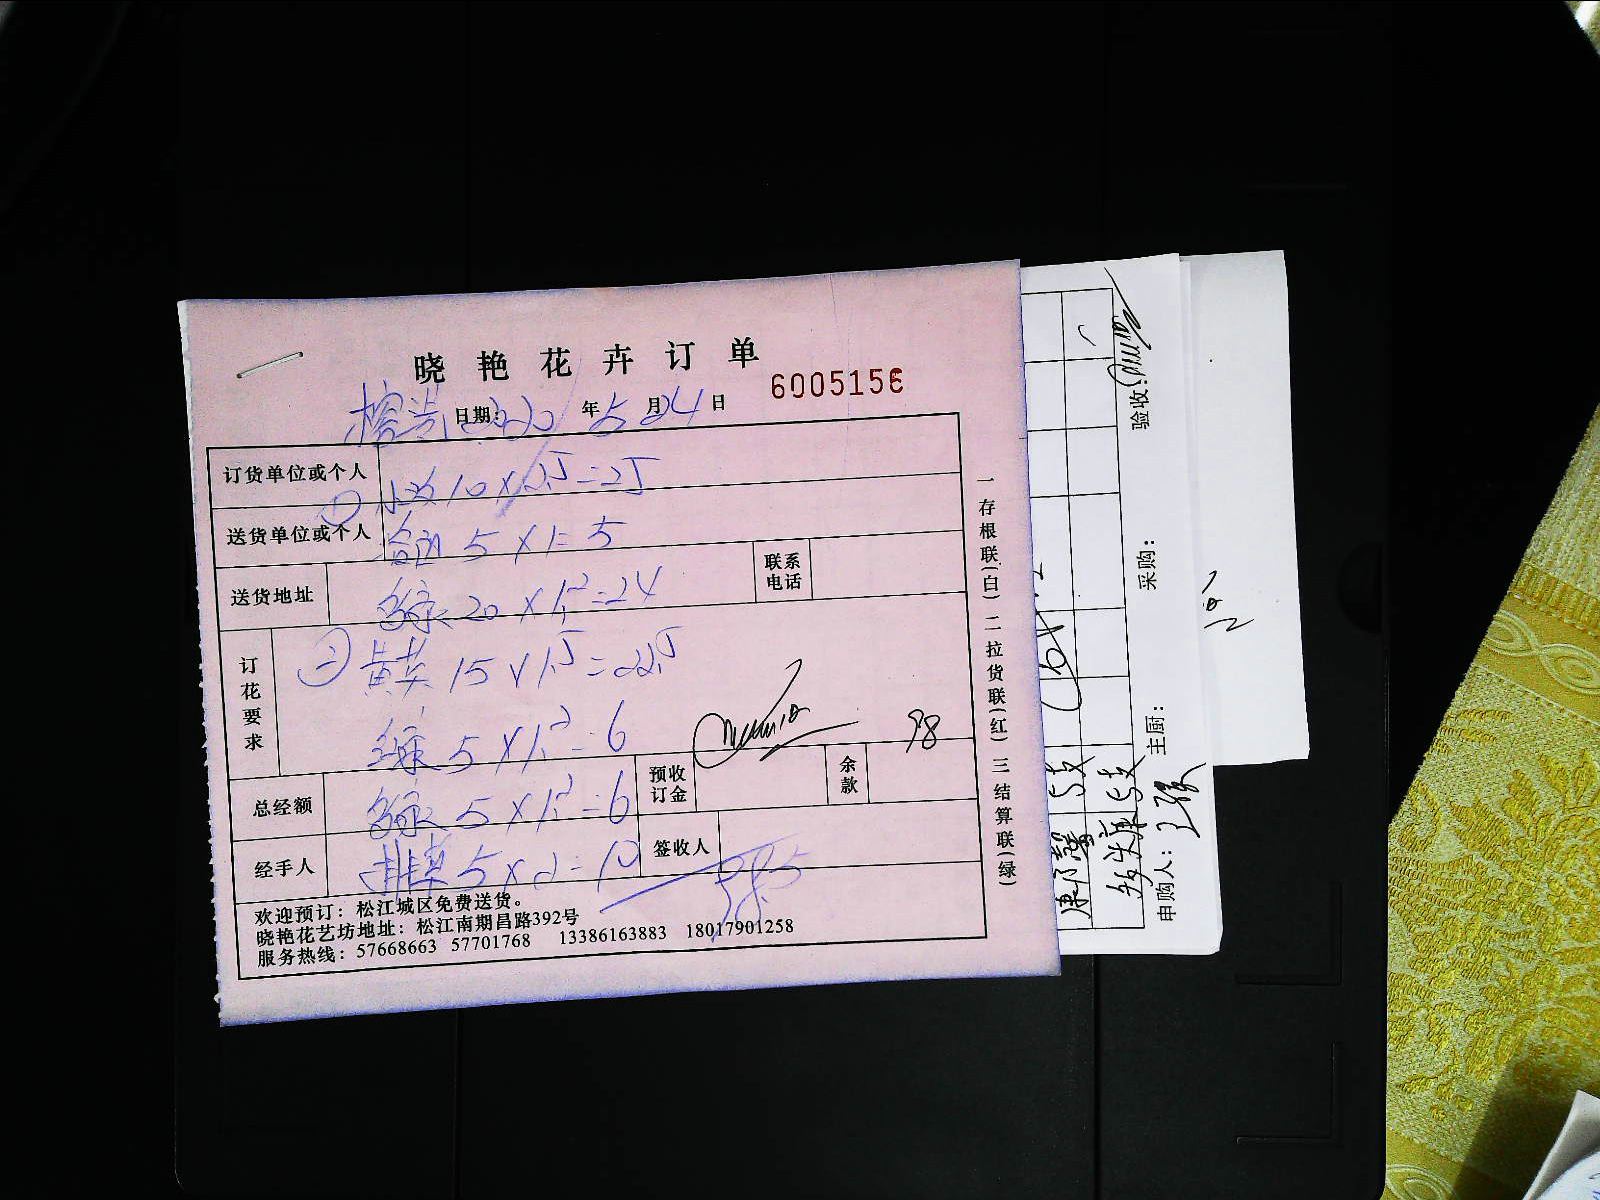 晓艳花卉订单
6005156
日期: 2020 年 5 月 24 日
订货单位或个人
① 10 × 2.5 = 25
送货单位或个人
5 × 1 = 5
送货地址
20 × 1.2 = 24
联系电话
订花要求
② 黄英 15 × 1.5 = 22.5
5 × 1.2 = 6
98
总经额
5 × 1.2 = 6
预收订金
余款
经手人
排草 5 × 2 = 10
签收人
98.5
欢迎预订：松江城区免费送货。
晓艳花艺坊地址：松江南期昌路392号
服务热线：57668663 57701768 13386163883 18017901258
一存根联(白) 二拉货联(红) 三结算联(绿)
康乃馨 5支
多头康 5支
验收：
采购：
主厨：
申购人：